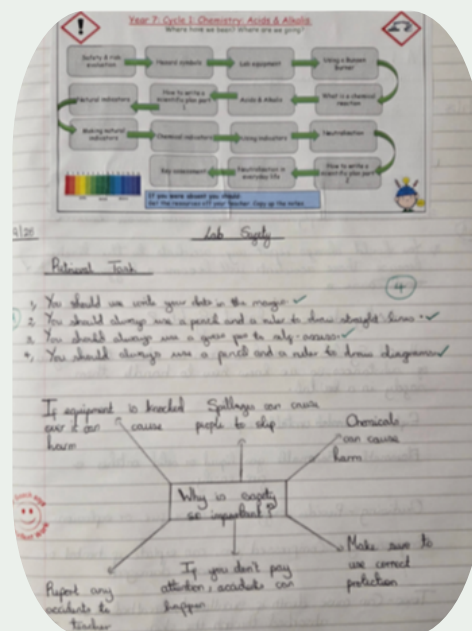 Year 7: Cycle 1: Chemistry: Acids & Alkalis
Where have we been? Where are we going?
Safety & risk evaluation
Hazard symbols
Lab equipment
Using a Bunsen Burner
What is a chemical reaction
Acids & Alkalis
How to write a scientific plan part
Natural indicators
Making natural indicators
Chemical indicators
Using indicators
Neutralisation
How to write a scientific plan part 2
Neutralisation in everyday life
Key assessment
If you were absent you should:
Get the resources off your teacher. Copy up the notes
Lab Safety
Retrieval Task
4
1, You should use write your date in the margin
2, You should always use a pencil and a ruler to draw straight lines.
3, You should always use a green pen to self-assess.
4, You should always use a pencil and a ruler to draw diagrams
If equipment is knocked
over it can cause
harm
Spillages can cause
people to slip
Chemicals
can cause
harm
Why is safety
so important?
Make sure to
use correct
protection
If you don't pay
attention, accidents can
happen
Report any
accidents to
teacher